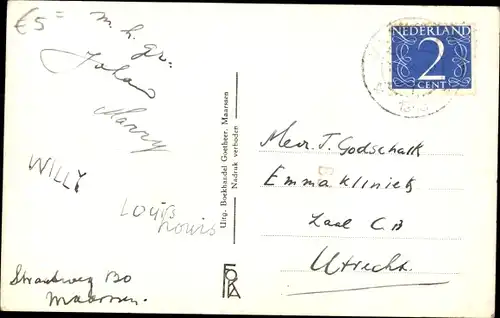 €5=
m. h. gr.
Johan
Marry
WILLY
Louis
Louis
Straatweg 130
Maarssen.
Uitg. Boekhandel Gostheer, Maarssen
Nadruk verboden
FOKA
NEDERLAND
2
CENT
Mevr. T. Godschalk
Emmakliniek
Zaal C.B
Utrecht.